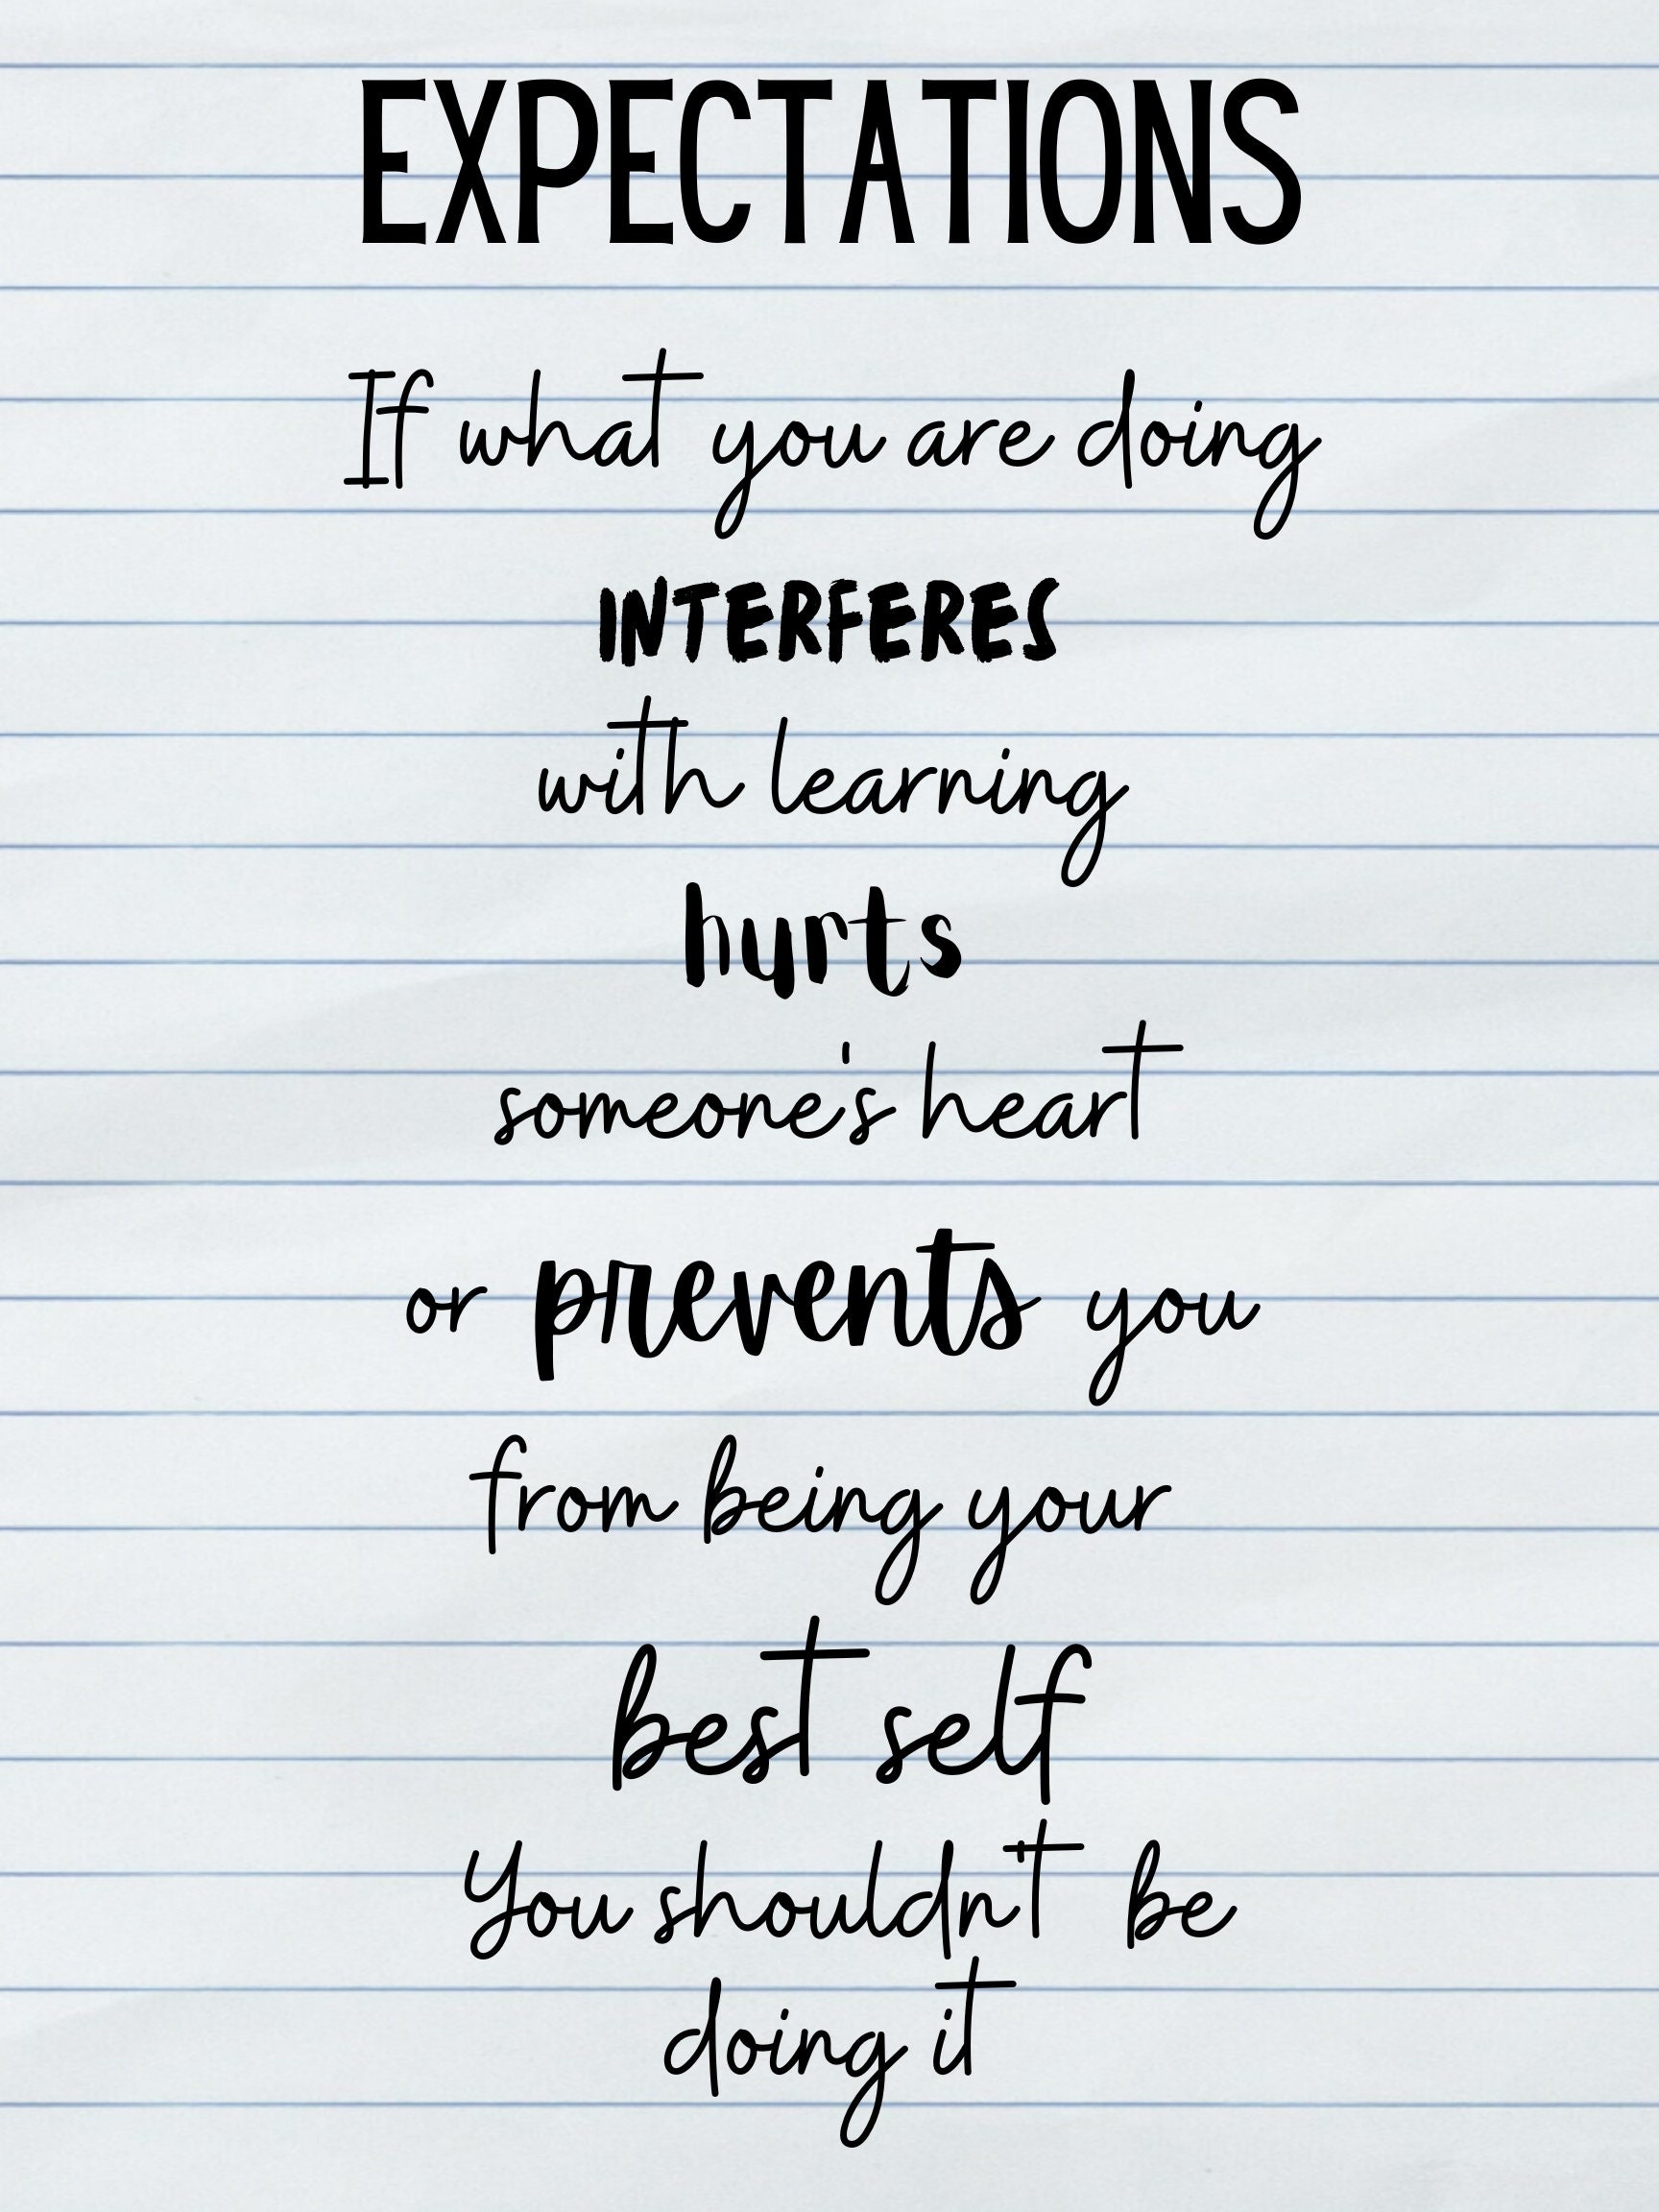 EXPECTATIONS
If what you are doing
INTERFERES
with learning
hurts
someone's heart
or prevents you
from being your
best self
You shouldn't be
doing it